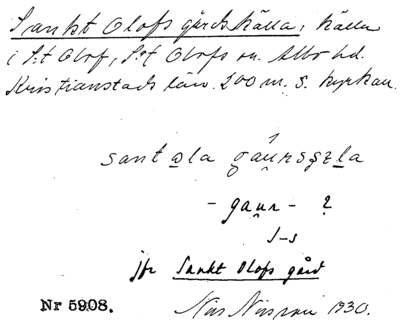 Sankt Olofs gårds källa, källa
i S:t Olof, S:t Olofs sn. Albo hd.
Kristianstads län. 200 m. S. kyrkan.
sant
- gaun - ?
s-s
jfr Sankt Olofs gård
Nr 5908.
Nils 1930.